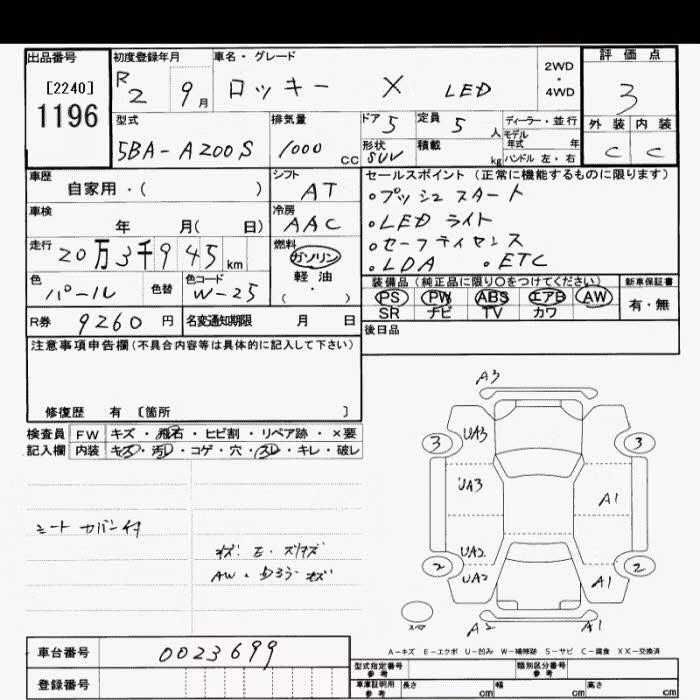 出品番号 初度登録年月 車名・グレード 評価点
[2240] R2 9月 ロッキー X LED 2WD・4WD 3
1196
型式 排気量 ドア 5 定員 5人 ディーラー・並行 外装 内装
5BA-A200S 1000cc 形状 SUV 積載 kg モデル年式 年 ハンドル 左・右 C C
車歴 シフト セールスポイント(正常に機能するものに限ります)
自家用・( ) AT 。プッシュスタート
車検 冷房 。LEDライト
年 月( 日) AAC
走行 燃料 。セーフティセンス
20万3千945km ガソリン 。LDA 。ETC
色 色替 色コード 軽・油 装備品(純正品に限り○をつけてください) 新車保証書
パール W-25 ・( ) PS PW ABS エアB AW 有・無
R券 9260円 名変通知期限 月 日 SR ナビ TV カワ
注意事項申告欄(不具合内容等は具体的に記入して下さい) 後日品
修復歴 有 〔箇所 〕
検査員 FW キズ・飛石・ヒビ割・リペア跡・×要
記入欄 内装 キズ・汚レ・コゲ・穴・スレ・キレ・破レ
A3
3 UA3 3
UA3 A1
シートカバー付
UA2
2 UA2 A1 2
AW・
スペア A2 A1
A-キズ E-エクボ U-凹み W-補修跡 S-サビ C-腐食 XX-交換済
車台番号 0023699
型式指定番号 参考 類別区分番号 参考
登録番号 車庫証明用 参考 長さ cm 幅 cm 高さ cm